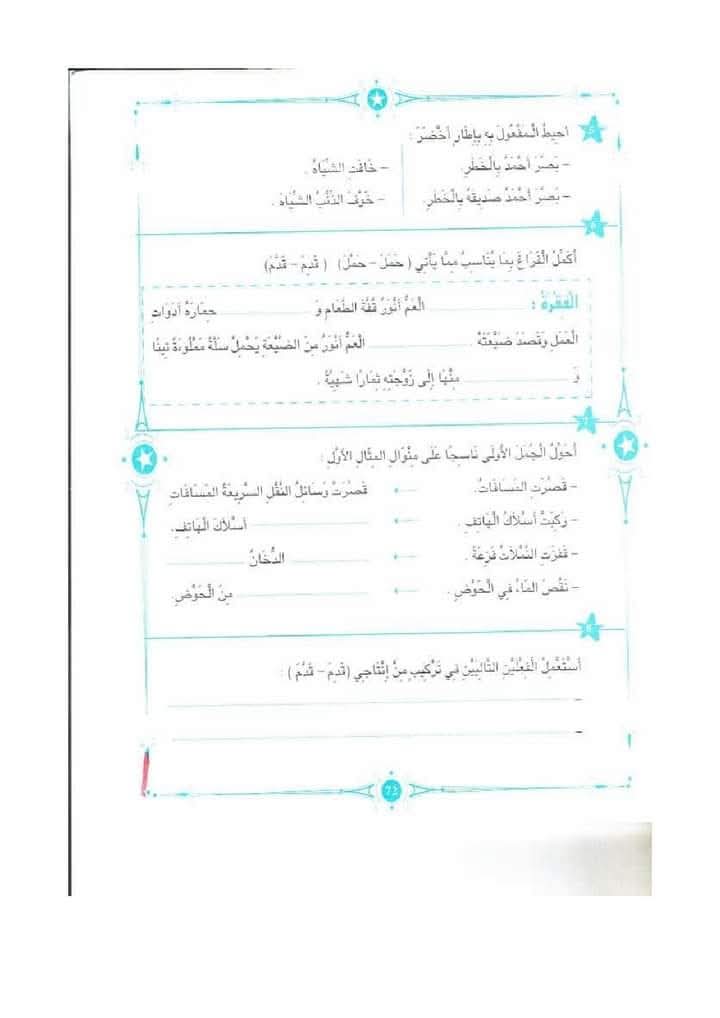 5 أُحِيطُ الْمَفْعُولَ بِهِ بِإِطَارٍ أَخْضَرَ :
– بَصُرَ أَحْمَدُ بِالْخَطَرِ.
– خَافَتِ الشِّيَاهُ .
– بَصَّرَ أَحْمَدُ صَدِيقَهُ بِالْخَطَرِ.
– خَوَّفَ الذِّئْبُ الشِّيَاهَ .
6
أُكَمِّلُ الْفَرَاغَ بِمَا يُنَاسِبُ مِمَّا يَأْتِي ( حَمَلَ – حَمَّلَ) ( قَدِمَ – قَدَّمَ)
الْفِقْرَةُ : الْعَمُّ أَنْوَرُ قُفَّةَ الطَّعَامِ وَ حِمَارَهُ أَدَوَاتِ
الْعَمَلِ وَقَصَدَ ضَيْعَتَهُ . الْعَمُّ أَنْوَرُ مِنَ الضَّيْعَةِ يَحْمِلُ سَلَّةً مَمْلُوءَةً تِينًا
وَ مِنْهَا إِلَى زَوْجَتِهِ ثِمَارًا شَهِيَّةً .
7
أُحَوِّلُ الْجُمَلَ الْأُولَى نَاسِجًا عَلَى مِنْوَالِ الْمِثَالِ الْأَوَّلِ :
– قَصُرَتِ الْمَسَافَاتُ. ← قَصَّرَتْ وَسَائِلُ النَّقْلِ السَّرِيعَةُ الْمَسَافَاتِ
– رَكِبَتْ أَسْلَاكُ الْهَاتِفِ . ← أَسْلَاكَ الْهَاتِفِ.
– قَفَزَتِ النَّمْلَاتُ فَزِعَةً . ← الدُّخَانُ
– نَقَصَ الْمَاءُ فِي الْحَوْضِ . ← مِنَ الْحَوْضِ.
8
أَسْتَعْمِلُ الْفِعْلَيْنِ التَّالِيَيْنِ فِي تَرْكِيبٍ مِنْ إِنْتَاجِي (قَدِمَ – قَدَّمَ ) :
–
–
72